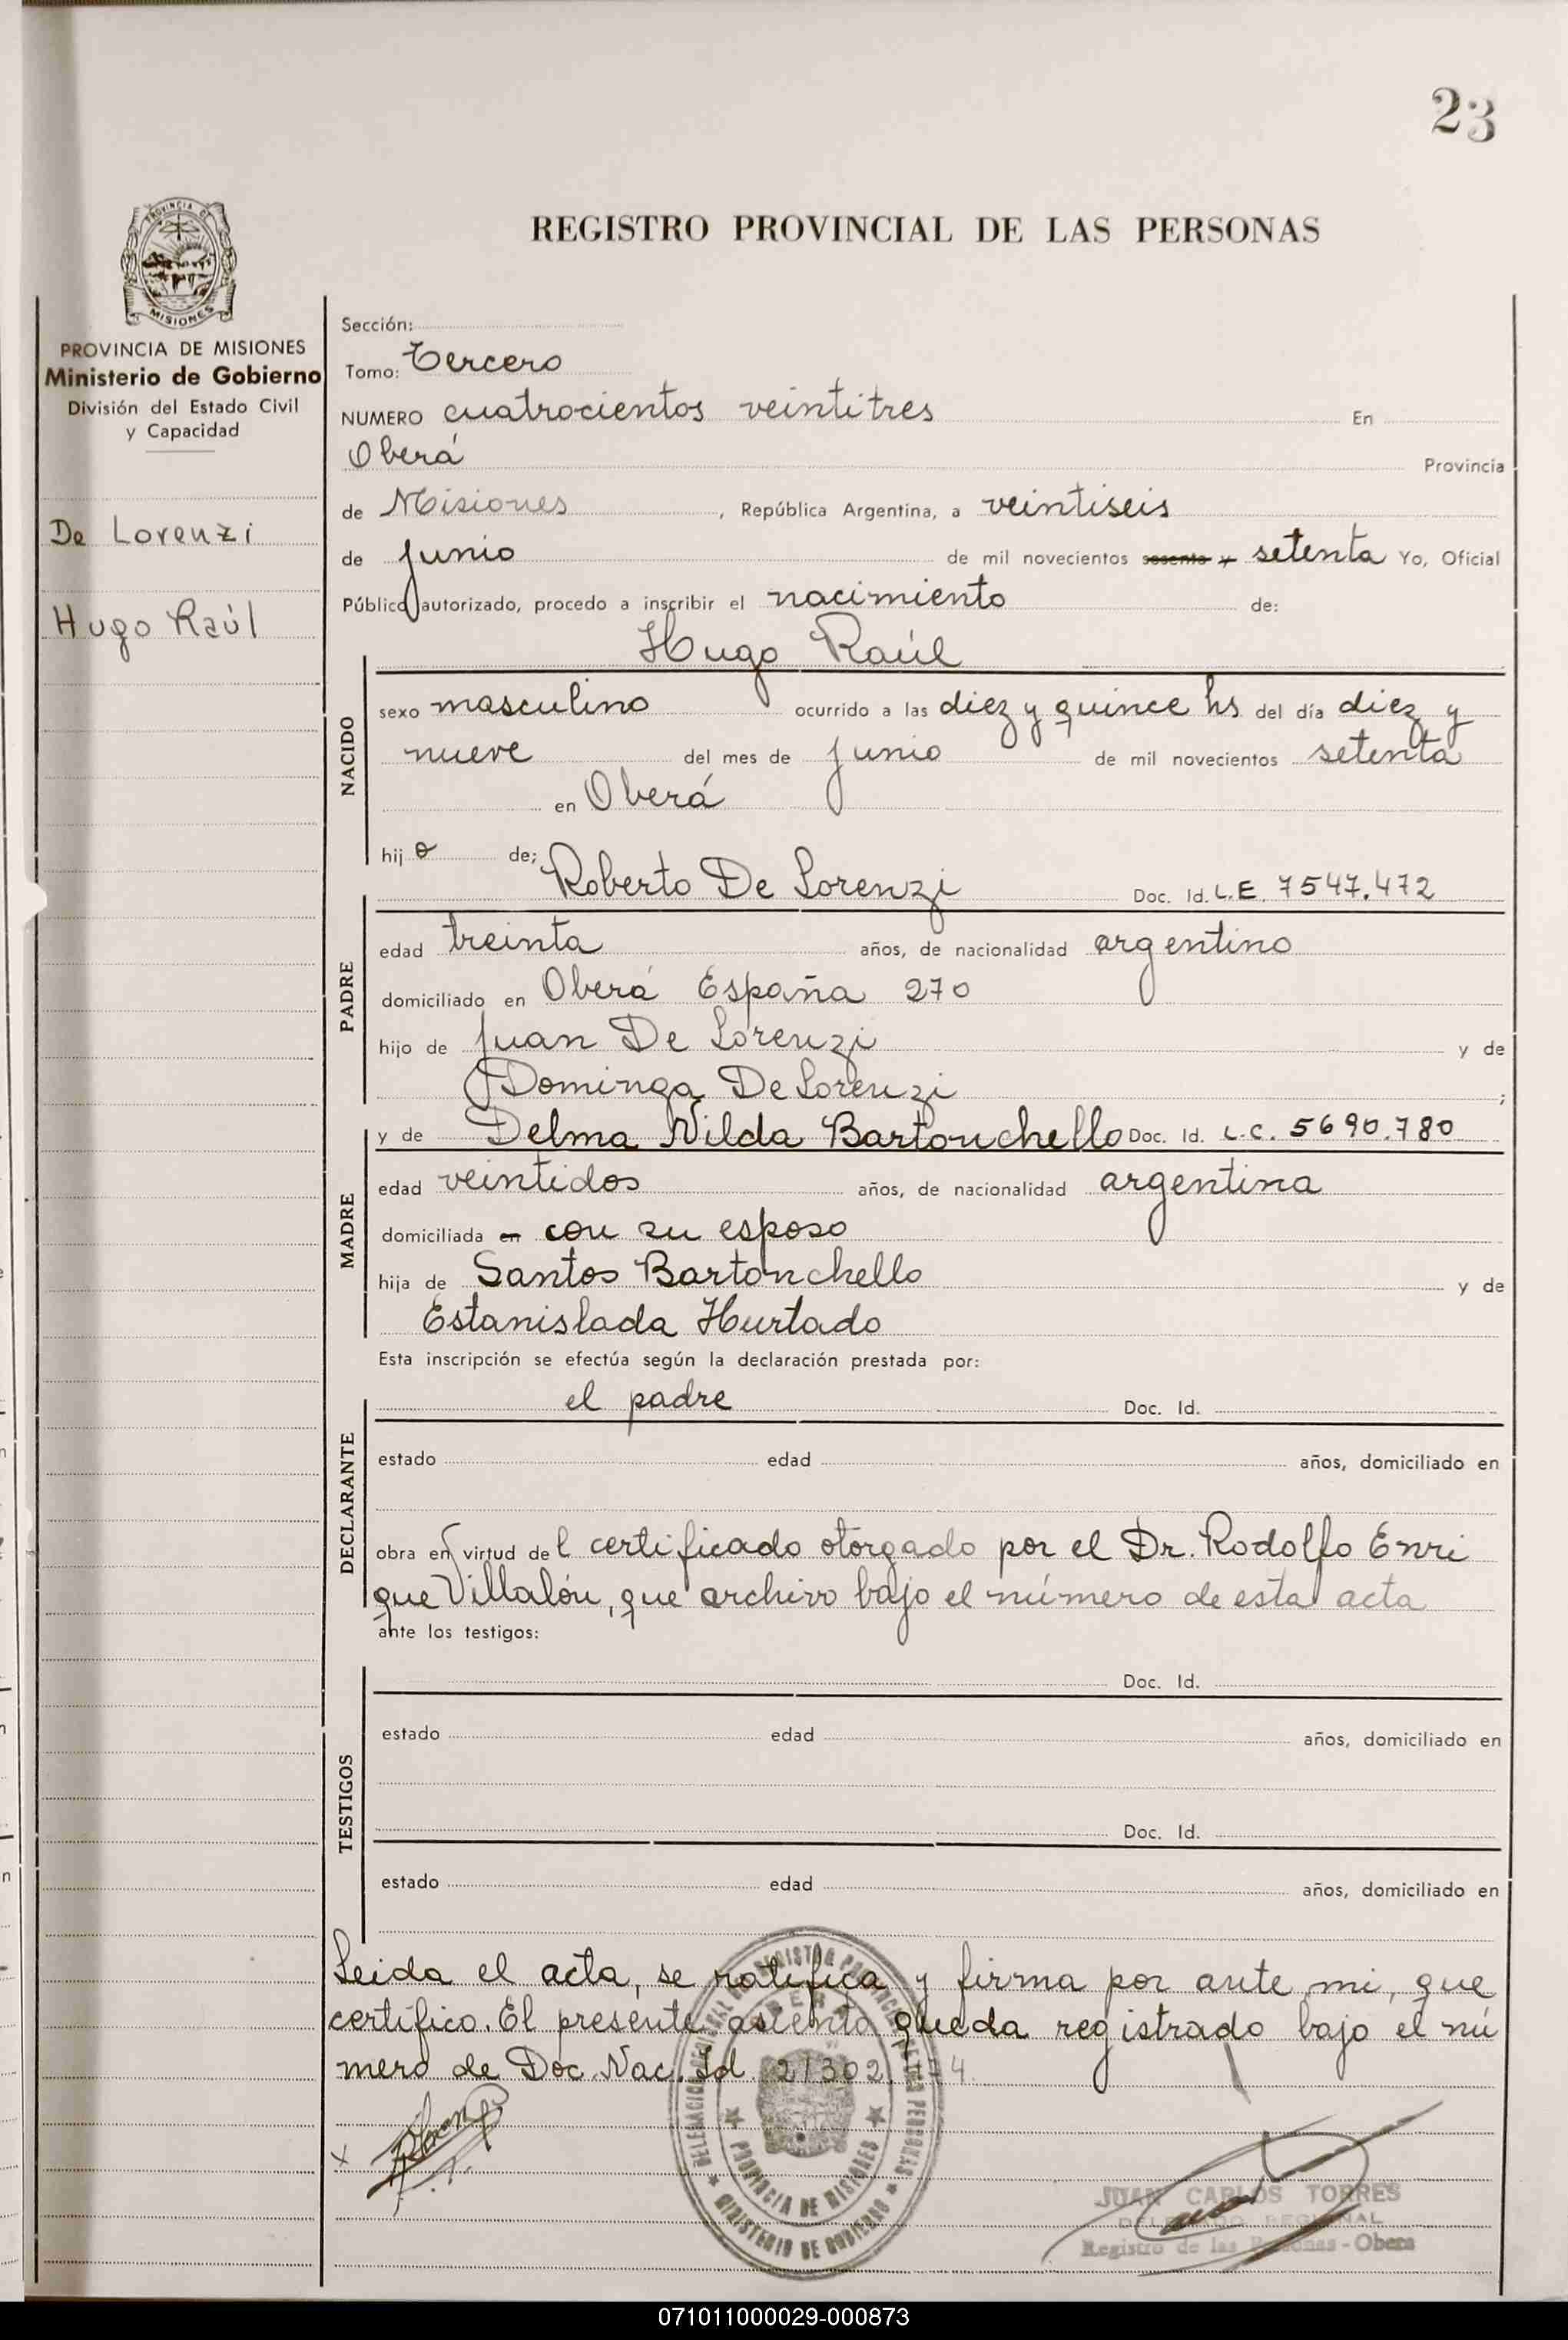 23
PROVINCIA DE
MISIONES
REGISTRO PROVINCIAL DE LAS PERSONAS
PROVINCIA DE MISIONES
Ministerio de Gobierno
División del Estado Civil
y Capacidad
De Lorenzi
Hugo Raúl
Sección:
Tomo: Tercero
NUMERO cuatrocientos veintitres En
Oberá Provincia
de Misiones, República Argentina, a veintiseis
de junio de mil novecientos sesenta y setenta Yo, Oficial
Público autorizado, procedo a inscribir el nacimiento de:
Hugo Raúl
NACIDO
sexo masculino ocurrido a las diez y quince hs del día diez y
nueve del mes de junio de mil novecientos setenta
en Oberá
hijo de;
Roberto De Lorenzi Doc. Id. L.E. 7547.472
PADRE
edad treinta años, de nacionalidad argentino
domiciliado en Oberá España 270
hijo de Juan De Lorenzi y de
Dominga De Lorenzi ;
y de Delma Nilda Bartonchello Doc. Id. L.C. 5690.780
MADRE
edad veintidos años, de nacionalidad argentina
domiciliada en con su esposo
hija de Santos Bartonchello y de
Estanislada Hurtado
Esta inscripción se efectúa según la declaración prestada por:
el padre Doc. Id.
DECLARANTE
estado edad años, domiciliado en
obra en virtud del certificado otorgado por el Dr. Rodolfo Enri
que Villalón, que archivo bajo el número de esta acta
ante los testigos:
TESTIGOS
Doc. Id.
estado edad años, domiciliado en
Doc. Id.
estado edad años, domiciliado en
Leida el acta, se ratifica y firma por ante mi, que
certifico. El presente asiento queda registrado bajo el nú
mero de Doc. Nac. Id. 21302
PROVINCIA DE MISIONES
MINISTERIO DE GOBIERNO
JUAN CARLOS TORRES
DELEGADO REGIONAL
Registro de las Personas - Obera
071011000029-000873